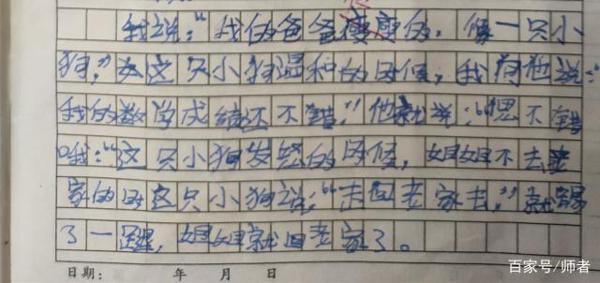 我说：“我的爸爸瘦瘦的，像一只小
狗，”如这只小狗温和的时候，我向他说：
我的数学成绩还不错，”他就说：“嗯不错
哦：“这只小狗发怒的时候，姐姐不去老
家的时这只小狗说：“走回老家去，”就踢
了一踢，姐姐就回老家了。
日期： 年 月 日
百家号/师者